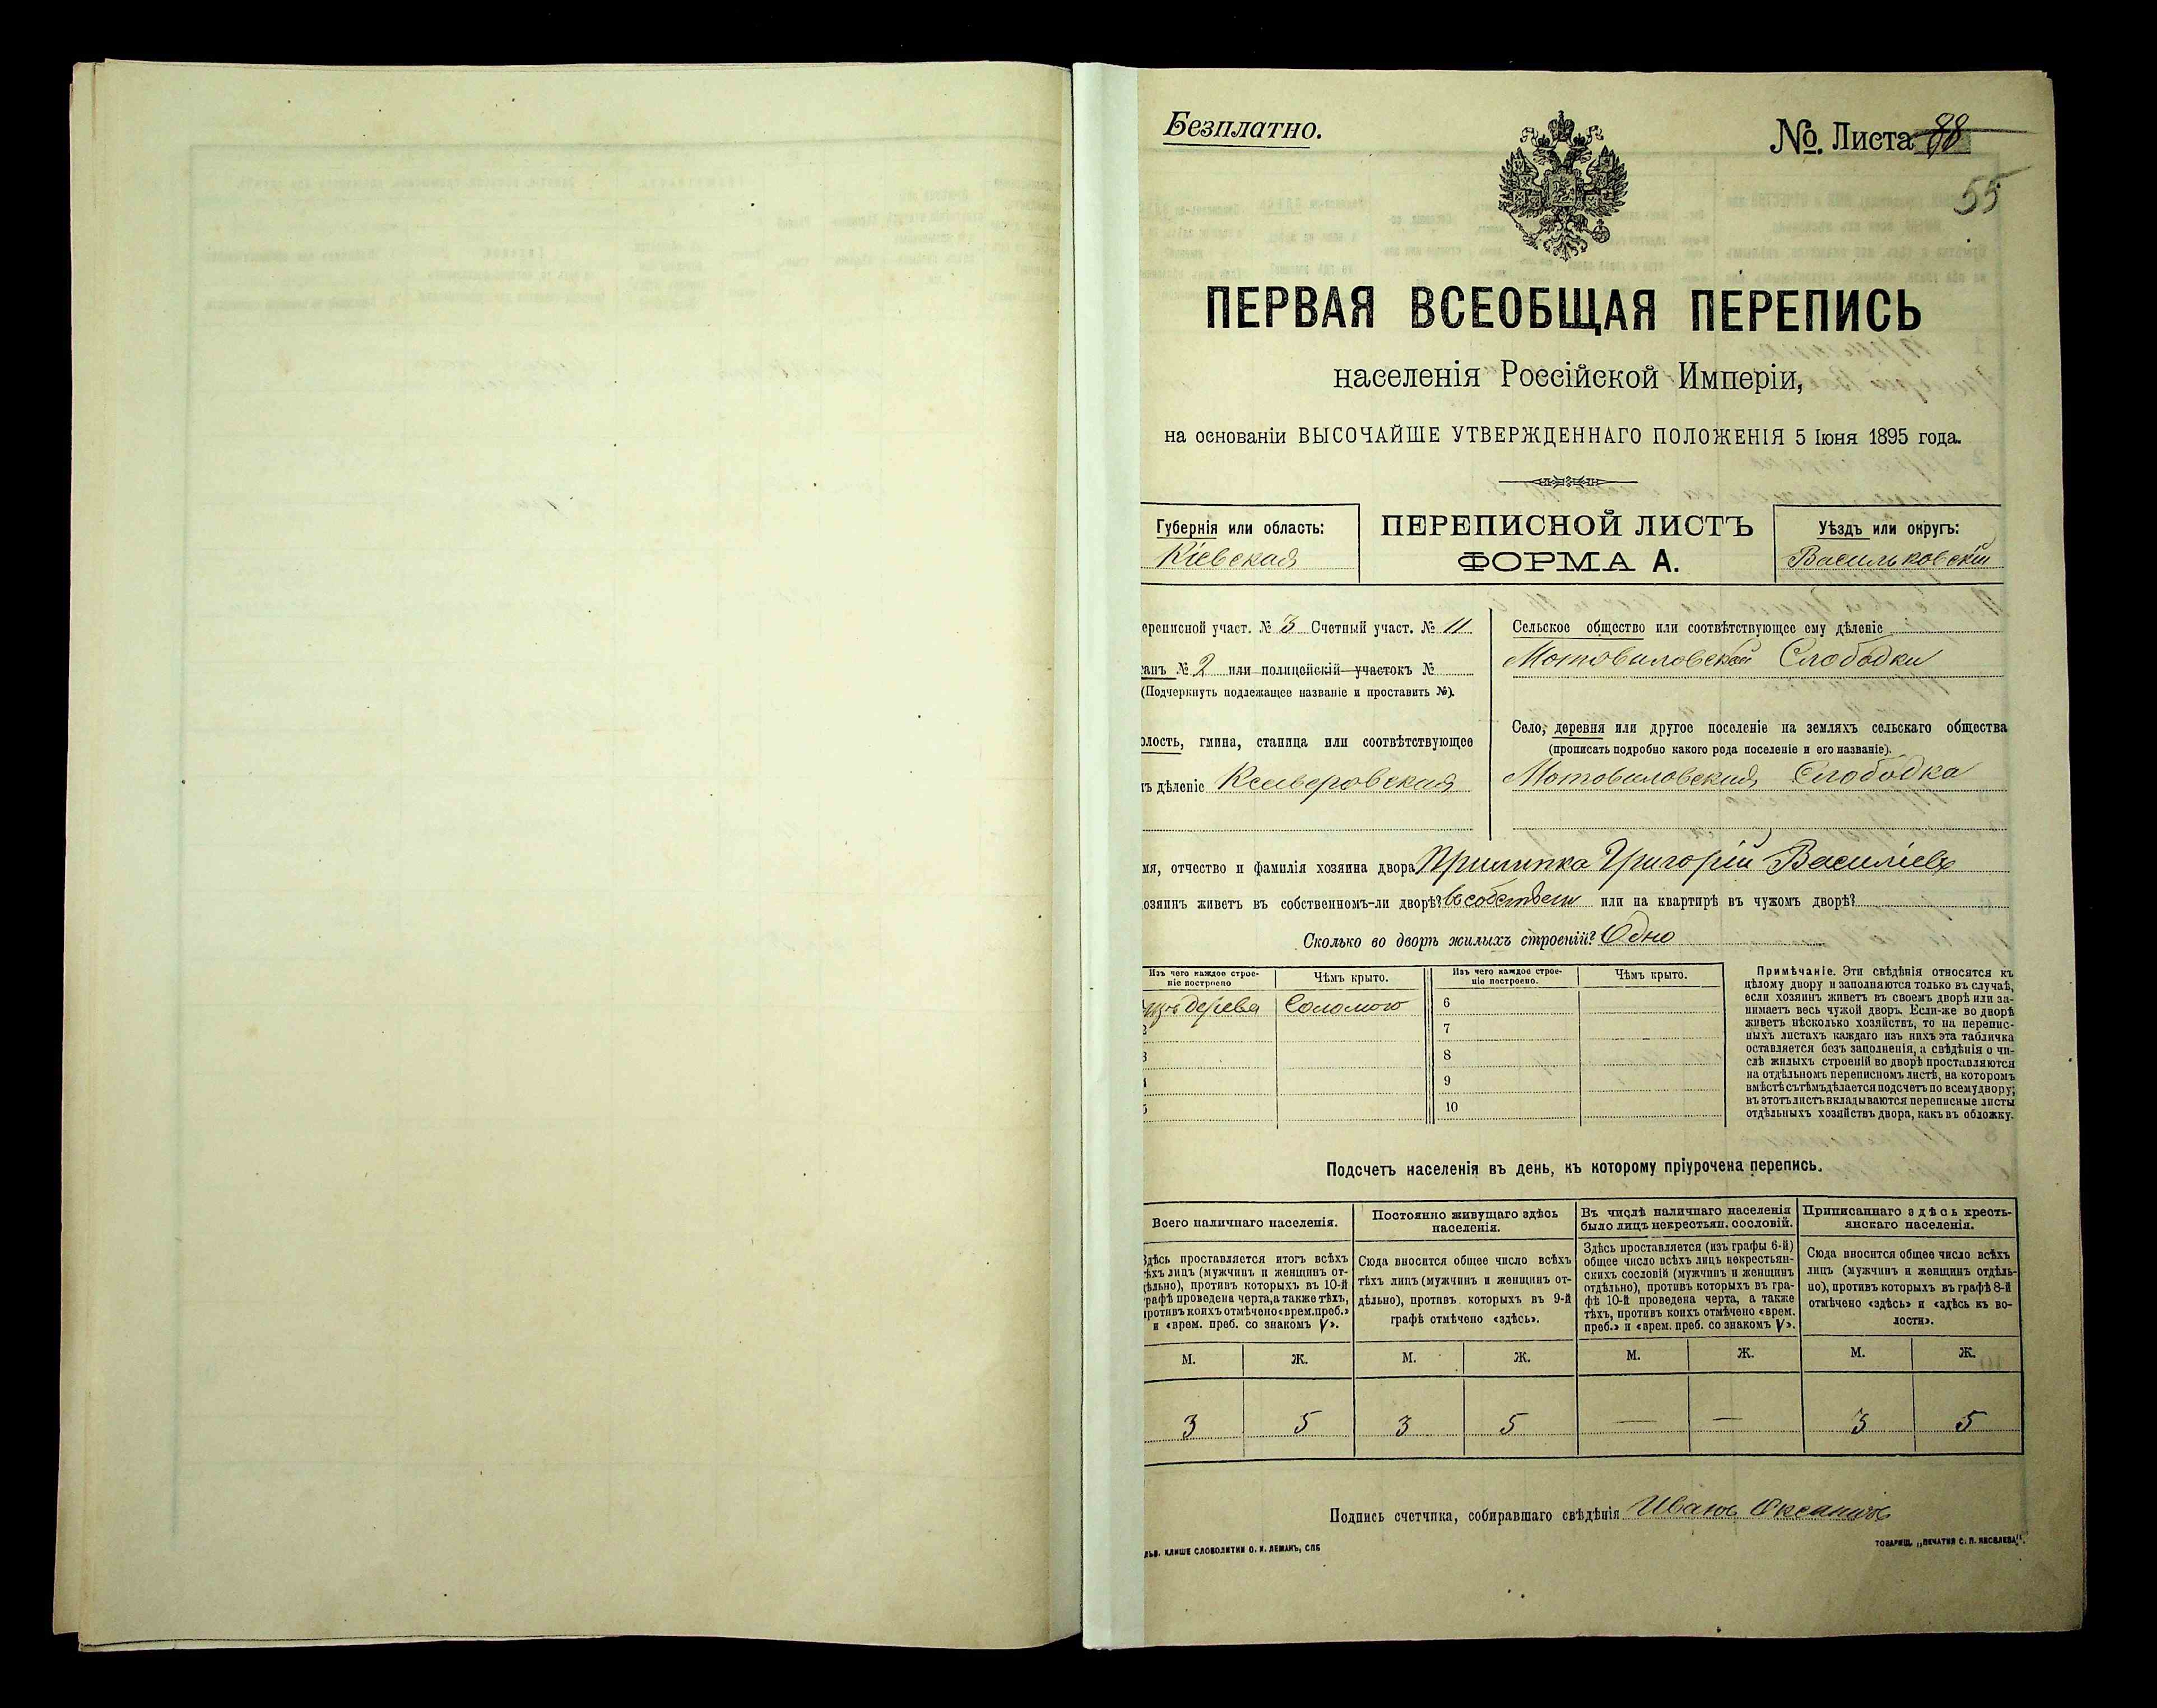 Безплатно.
№. Листа 88
55
ПЕРВАЯ ВСЕОБЩАЯ ПЕРЕПИСЬ
населенія Россійской Имперіи,
на основаніи ВЫСОЧАЙШЕ УТВЕРЖДЕННАГО ПОЛОЖЕНІЯ 5 Іюня 1895 года.
Губернія или область:
Кіевская
ПЕРЕПИСНОЙ ЛИСТЪ
ФОРМА А.
Уѣздъ или округъ:
Васильковскій
ереписной участ. № 3 Счетный участ. № 11
анъ № 2 или полицейскій участокъ №
(Подчеркнуть подлежащее названіе и проставить №).
олость, гмина, станица или соотвѣтствующее
ъ дѣленіе Ксаверовская
Сельское общество или соотвѣтствующее ему дѣленіе
Мотовиловской Слободки
Село, деревня или другое поселеніе на земляхъ сельскаго общества
(прописать подробно какого рода поселеніе и его названіе).
Мотовиловская Слободка
мя, отчество и фамилія хозяина двора Прилипка Григорій Васильевъ
озяинъ живетъ въ собственномъ-ли дворѣ? въ собствен или на квартирѣ въ чужомъ дворѣ?
Сколько во дворѣ жилыхъ строеній? Одно
Изъ чего каждое строе-
ніе построено
Чѣмъ крыто.
изъ дерева Соломою
2
3
4
5
Изъ чего каждое строе-
ніе построено.
Чѣмъ крыто.
6
7
8
9
10
Примѣчаніе. Эти свѣдѣнія относятся къ
цѣлому двору и заполняются только въ случаѣ,
если хозяинъ живетъ въ своемъ дворѣ или за-
нимаетъ весь чужой дворъ. Если-же во дворѣ
живетъ нѣсколько хозяйствъ, то на перепис-
ныхъ листахъ каждаго изъ нихъ эта табличка
оставляется безъ заполненія, а свѣдѣнія о чи-
слѣ жилыхъ строеній во дворѣ проставляются
на отдѣльномъ переписномъ листѣ, на которомъ
вмѣстѣ съ тѣмъ дѣлается подсчетъ по всему двору;
въ этотъ листъ вкладываются переписные листы
отдѣльныхъ хозяйствъ двора, какъ въ обложку.
Подсчетъ населенія въ день, къ которому пріурочена перепись.
Всего наличнаго населенія.
Здѣсь проставляется итогъ всѣхъ
ѣхъ лицъ (мужчинъ и женщинъ от-
дѣльно), противъ которыхъ въ 10-й
рафѣ проведена черта, а также тѣхъ,
противъ коихъ отмѣчено «врем. преб.»
и «врем. преб. со знакомъ V».
Постоянно живущаго здѣсь
населенія.
Сюда вносится общее число всѣхъ
тѣхъ лицъ (мужчинъ и женщинъ от-
дѣльно), противъ которыхъ въ 9-й
графѣ отмѣчено «здѣсь».
Въ числѣ наличнаго населенія
было лицъ некрестьян. сословій.
Здѣсь проставляется (изъ графы 6-й)
общее число всѣхъ лицъ некрестьян-
скихъ сословій (мужчинъ и женщинъ
отдѣльно), противъ которыхъ въ гра-
фѣ 10-й проведена черта, а также
тѣхъ, противъ коихъ отмѣчено «врем.
преб.» и «врем. преб. со знакомъ V».
Приписаннаго здѣсь кресть-
янскаго населенія.
Сюда вносится общее число всѣхъ
лицъ (мужчинъ и женщинъ отдѣль-
но), противъ которыхъ въ графѣ 8-й
отмѣчено «здѣсь» и «здѣсь къ во-
лости».
М. Ж. М. Ж. М. Ж. М. Ж.
3 5 3 5 — — 3 5
Подпись счетчика, собиравшаго свѣдѣнія Иванъ
КЛИШЕ СЛОВОЛИТНИ О. И. ЛЕМАНЪ, СПБ
ТОВАРИЩ. „ПЕЧАТНЯ С. П. ЯКОВЛЕВА".